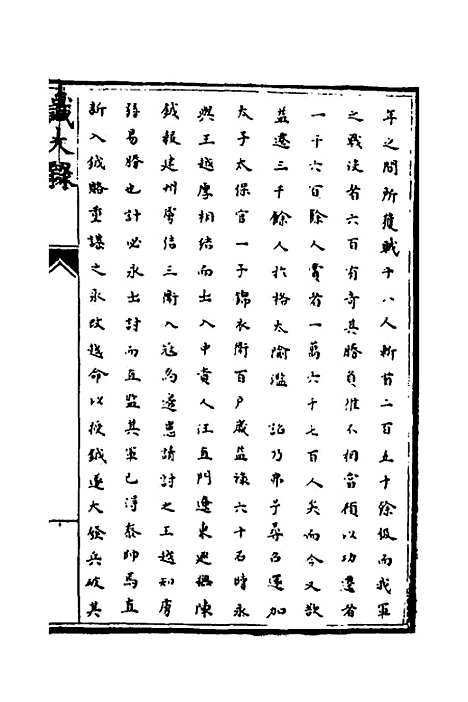 年之間所獲賊十八人斬首二百五十餘級而我軍
之戰沒者六百有奇其勝負雖不相當顧以功遷者
一千六百餘人賞者一萬六千七百人矣而今又欲
益遷三千餘人於格太踰濫 詔乃弗予尋召還加
太子太保官一子錦衣衛百戶歲益祿六十石時永
與王越厚相結而出入中貴人汪直門遼東巡撫陳
鉞報建州虜結三衛入寇為邊患請討之王越知虜
弱易勝也計必永出討而直監其軍已得泰帥馬直
新入鉞賂重謀之永故越命以授鉞遂大發兵破其
識大錄